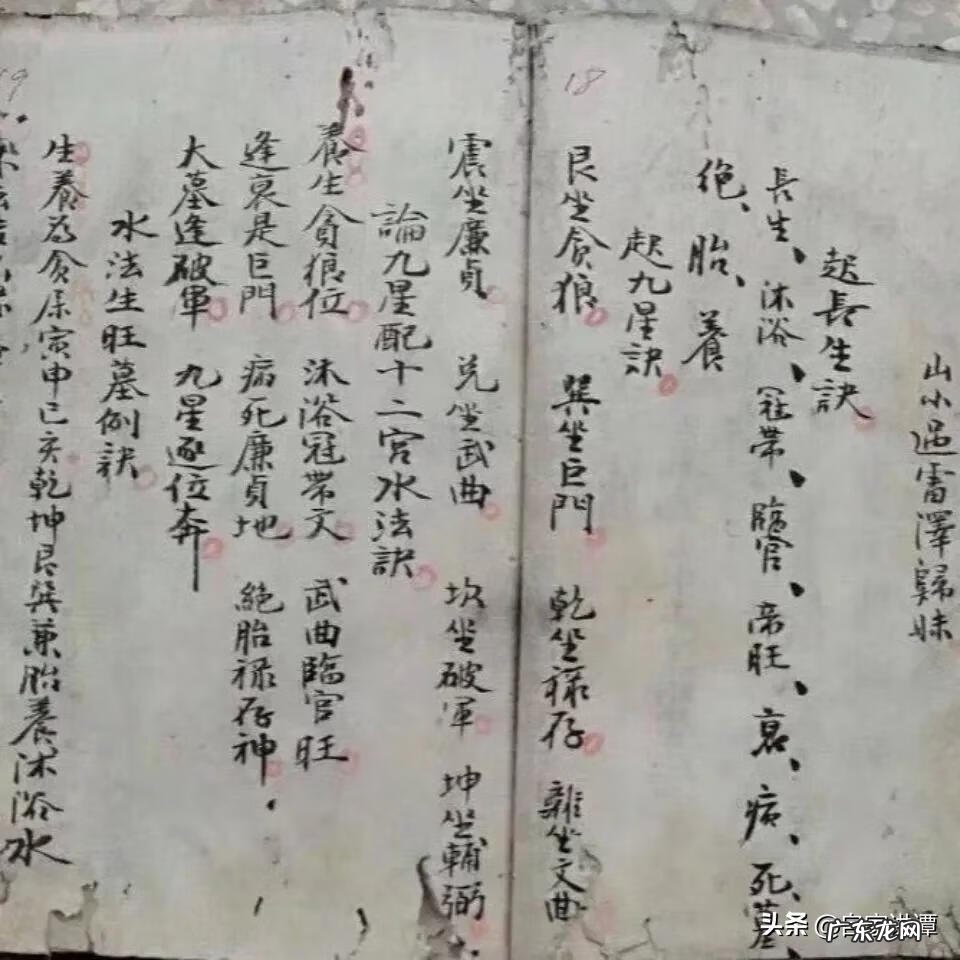 18
山小過雷澤歸妹
起長生訣
長生、沐浴、冠帶、臨官、帝旺、衰、病、死、墓、
絶、胎、養
起九星訣
艮坐貪狼 巽坐巨門 乾坐祿存 離坐文曲
震坐廉貞 兌坐武曲 坎坐破軍 坤坐輔弼
論九星配十二宮水法訣
養生貪狼位 沐浴冠帶文 武曲臨官旺
逢衰是巨門 病死廉貞地 絕胎祿存神
大墓逢破軍 九星逐位奔
水法生旺墓例訣
19
生養為貪居寅申巳亥乾坤艮巽兼胎養沐浴水
头条
广东龙网